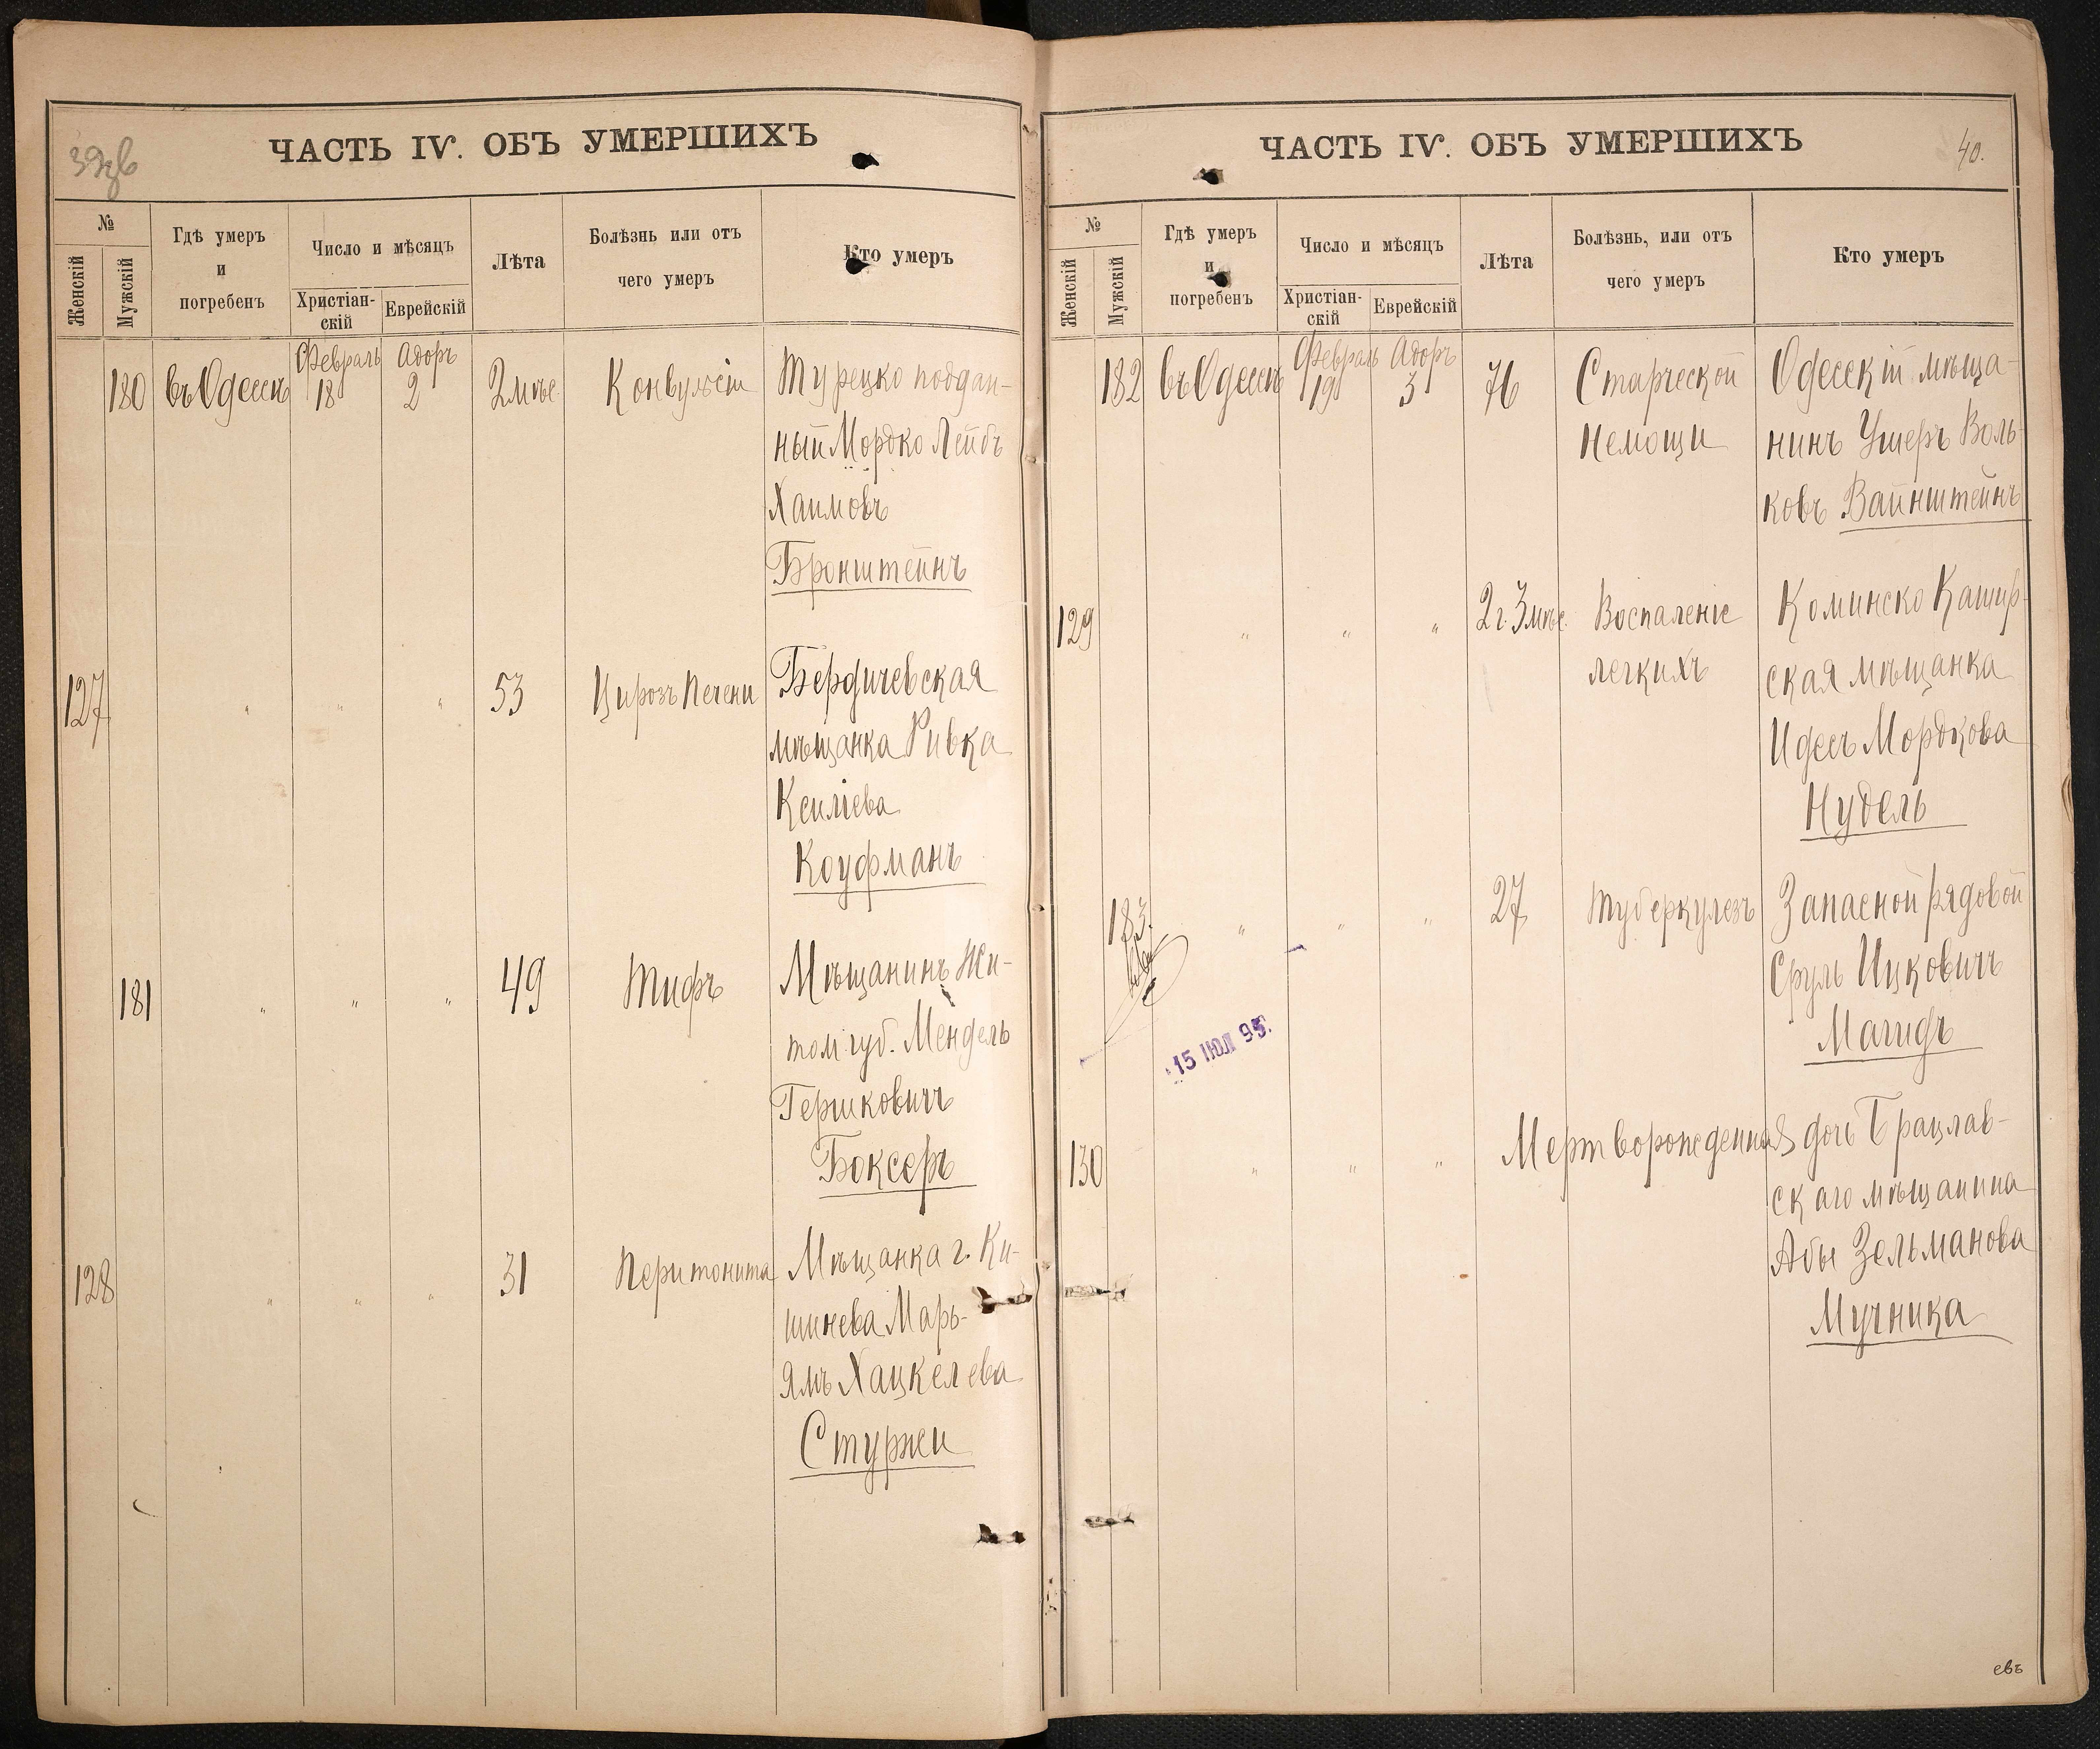 ЧАСТЬ IV. ОБЪ УМЕРШИХЪ
№
Женскій
Мужскій
Гдѣ умеръ
и
погребенъ
Число и мѣсяцъ
Христіан-
скій
Еврейскій
Лѣта
Болѣзнь или отъ
чего умеръ
Кто умеръ
180 въ Одессѣ Февраль 18 Адоръ 2 2 мѣс. Конвульсіи Турецко поддан-
ный Мордко Лейбъ
Хаимовъ
Бронштейнъ
127 " " " 53 Цирозъ печени Бердичевская
мѣщанка Ривка
Ксиліева
Коуфманъ
181 " " " 49 Тифъ Мѣщанинъ Жи-
том. губ. Мендель
Гершковичъ
Боксеръ
128 " " " 31 Перитонита Мѣщанка г. Ки-
шинева Марь-
ямъ Хацкелева
Стуржи
ЧАСТЬ IV. ОБЪ УМЕРШИХЪ
40.
№
Женскій
Мужскій
Гдѣ умеръ
и
погребенъ
Число и мѣсяцъ
Христіан-
скій
Еврейскій
Лѣта
Болѣзнь, или отъ
чего умеръ
Кто умеръ
182 въ Одессѣ Февраль 19 Адоръ 3 76 Старческой Одесскій мѣща-
немощи нинъ Ушеръ Воль-
ковъ Вайнштейнъ
129 " " " 2 г. 3 мѣс. Воспаленіе Коминско Кашир-
легкихъ ская мѣщанка
Идесъ Мордкова
Нудель
183. " " " 27 Туберкулезъ Запасной рядовой
Сруль Ицковичъ
Магидъ
15 ІЮЛ 95.
130 " " " Мертворожденная дочь Брацлав-
скаго мѣщанина
Абы Зельманова
Мучника
евъ